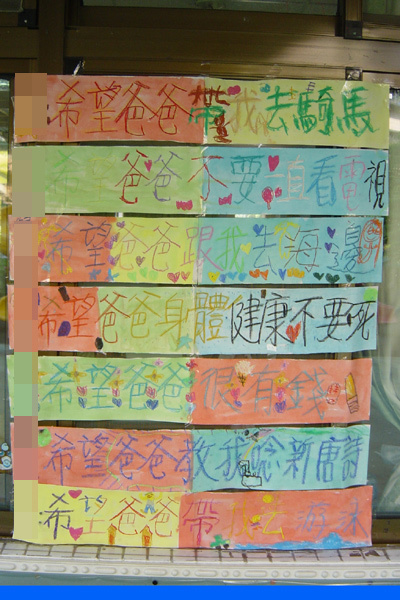 希望爸爸帶我去騎馬
希望爸爸不要一直看電視
希望爸爸跟我去海邊
希望爸爸身體健康不要死
希望爸爸很有錢
希望爸爸教我唸新唐詩
希望爸爸帶我去游泳